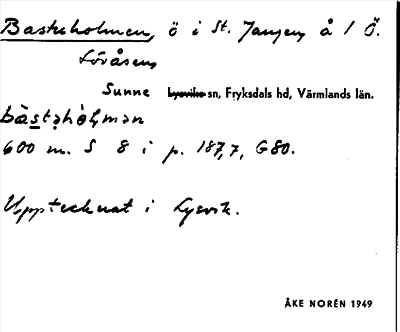 Bastuholmen, ö i St. Jangen å 1 Ö.
Lövåsen
Sunne Lysviks sn, Fryksdals hd, Värmlands län.
600 m. S 8 i p. 187,7, G80.
Upptecknat i Lysvik.
ÅKE NORÉN 1949